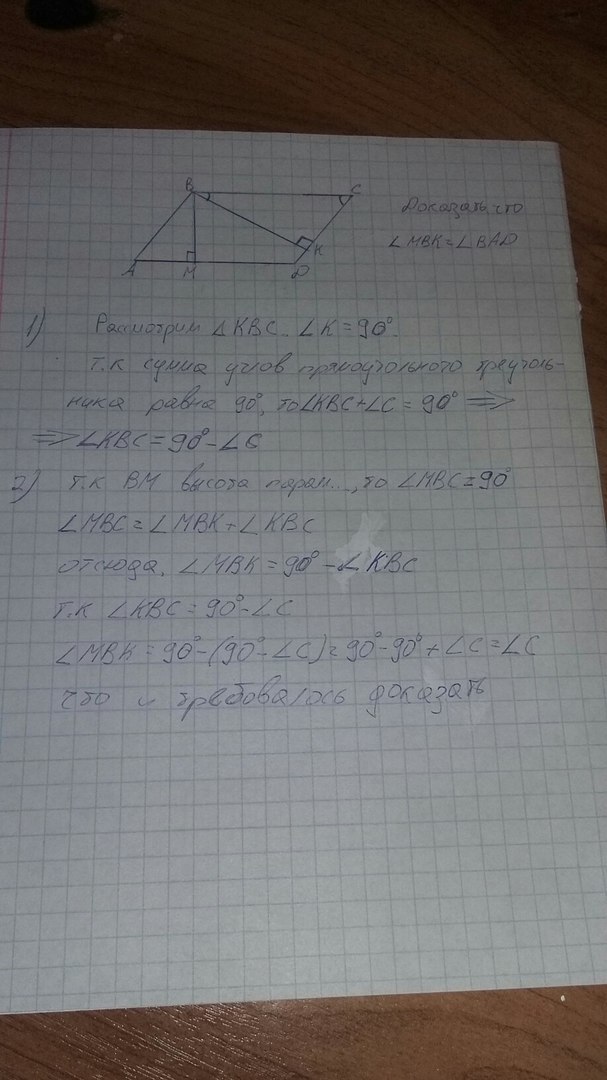 B C
A M D K
Доказать что
∠MBK=∠BAD
1) Рассмотрим ∠KBC. ∠K=90°.
т.к сумма углов прямоугольного треуголь-
ника равна 90°, то ∠KBC+∠C=90° ⇒
⇒ ∠KBC=90°-∠C
2) т.к BM высота парал..., то ∠MBC=90°
∠MBC=∠MBK+∠KBC
отсюда, ∠MBK=90°-∠KBC
т.к ∠KBC=90°-∠C
∠MBK=90°-(90°-∠C)=90°-90°+∠C=∠C
что и требовалось доказать